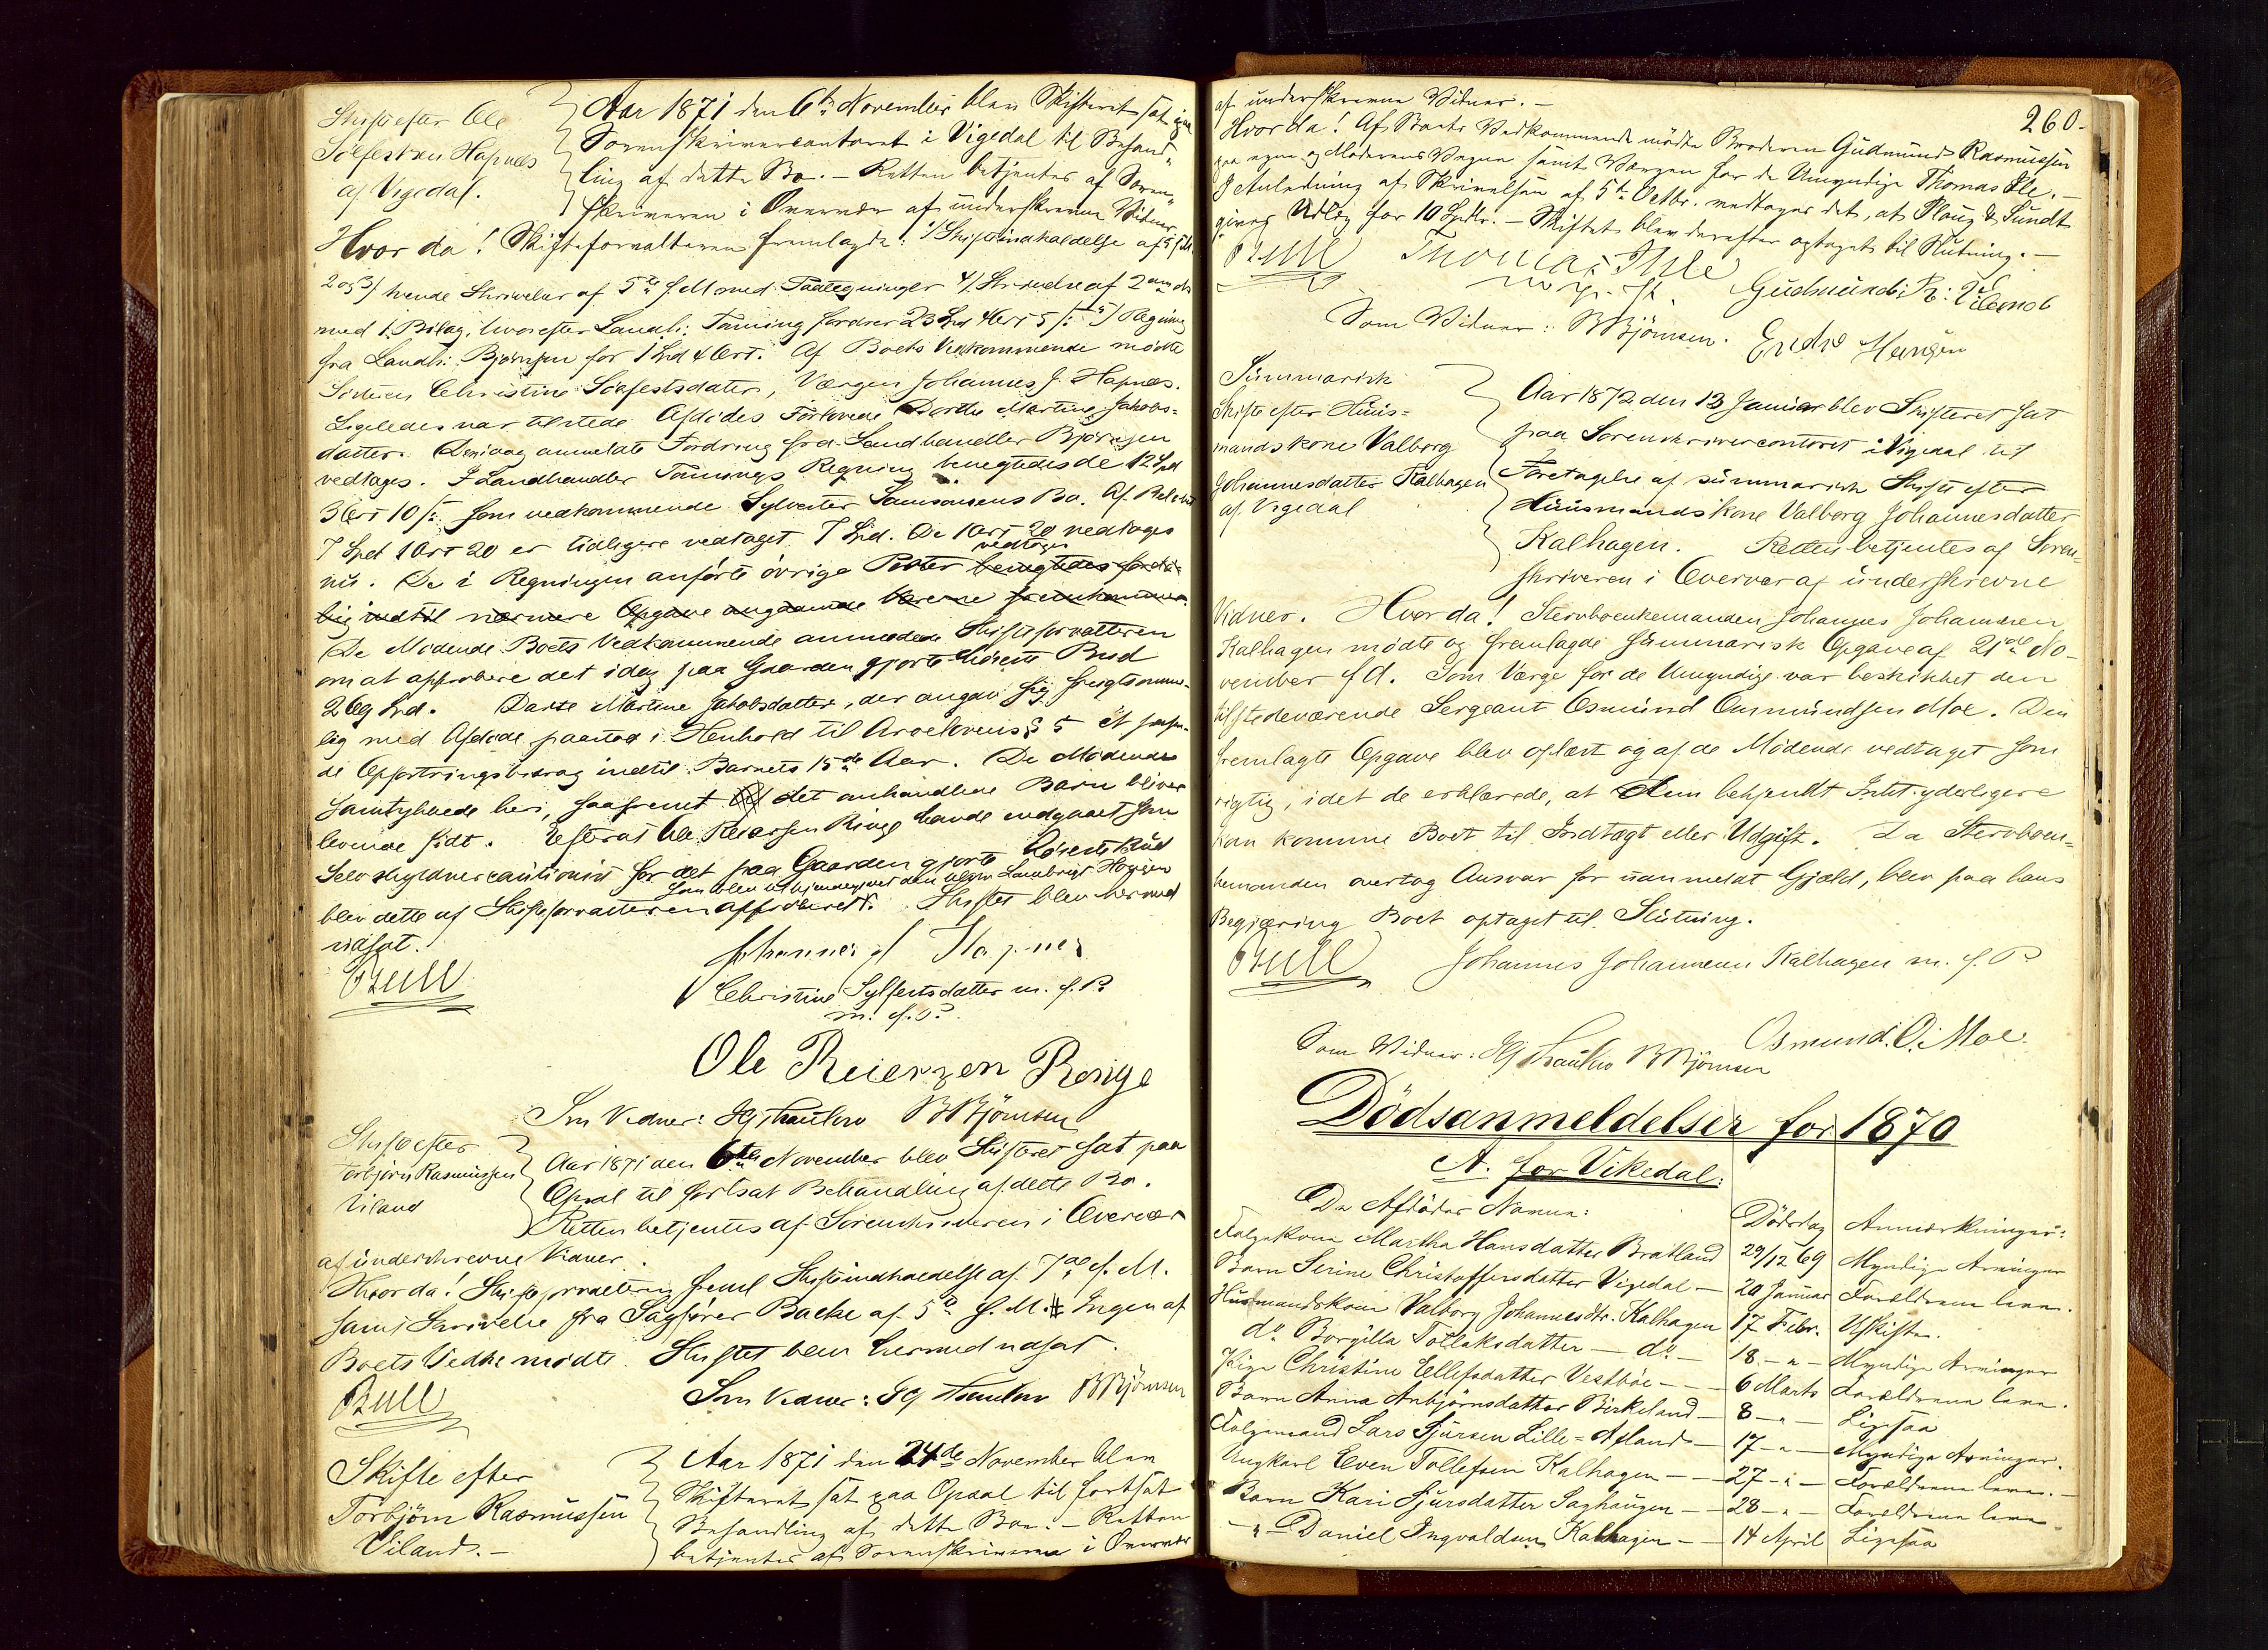 Skifte efter Ole
Solfestsen Hapnæs
af Vigedal.
Aar 1871 den 6te November blev Skifteret sat paa
Sorenskrivercontoret i Vigedal til Behand-
ling af dette Bo. - Retten betjentes af Soren-
skriveren i Overvær af underskrevne Vidner.
Hvor da! Skifteforvalteren fremlagde: 1/ Skifteindkaldelse af
2 og 3/ tvende Skrivelser af 5te f.M. med Paategninger 4/ Skrivelse af 2den ds
med 1 Bilag, hvorefter Landh: Tauning fordrer 23 Spd 4 Ort 5 s: 5/ Regning
fra Landh: Bjørnsen for 1 Spd 4 Ort. Af Boets Vedkommende mødte
Søsteren Christine Solfestsdatter, Værgen Johannes J. Hapnæs.
Ligeledes var tilstede Afdødes Forlovede Dorthe Martine Jakobs-
datter. Den idag anmeldte Fordring fra Landhandler Bjørnsen
vedtages. I Landhandler Taunings Regning benegtedes de 12 Spd
3 Ort 10 s: som vedkommende Sylvester Samsonsens Bo. Af Beløbet
7 Spd 1 Ort 20 er tidligere vedtaget 7 Spd. De 1 Ort 20 vedtages
nu. De i Regningen anførte øvrige Poster vedtages benegtedes forelø-
big indtil nærmere Opgave angaaende Varerne fremkommer.
De Mødende Boets Vedkommende anmodede Skifteforvalteren
om at approbere det idag paa Gaarden gjorte høieste Bud
269 Spd. Dorte Martine Jakobsdatter, der angav sig frugtsomme-
lig med Afdøde paastod i Henhold til Arvelovens § 5 et passen-
de Opfostringsbidrag indtil Barnets 15de Aar. De Mødende
samtykkede heri, saafremt det omhandlede Barn bliver
levende født. Efterat Ole Reiersen Ringe havde indgaaet som
Selvskyldnercautionist for det paa Gaarden gjorte høieste Bud
som blev tilkjendegivet
blev dette af Skifteforvalteren approberet. Skiftet blev hermed
udsat.
Bull
Johannes J Hapnes
Christine Sylfestsdatter m. f. P.
m. f. P.
Ole Reiersen Ringe
Som Vidner: BBjörnsen
Skifte efter
Torbjørn Rasmussen
Øiland
Aar 1871 den 6te November blev Skifteret sat paa
Opsal til fortsat Behandling af dette Bo.
Retten betjentes af Sorenskriveren i Overvær
af underskrevne Vidner.
Hvor da! Skifteforvalteren freml Skifteindkaldelse af 7de f. M.
samt Skrivelse fra Sagfører Backe af 5te f. M. Ingen af
Boets Vedk. mødte. Skiftet blev hermed udsat.
Bull
Som Vidner: BBjörnsen
Skifte efter
Torbjörn Rasmussen
Øiland. -
Aar 1871 den 24de November blev
Skifteret sat paa Opsal til fortsat
Behandling af dette Bo. - Retten
betjentes af Sorenskriveren i Overvær
260.
af underskrevne Vidner. -
Hvor da! Af Boets Vedkommende mödte Broderen Gudmund Rasmussen
paa egne og Moderens Vegne samt Værgen for de Umyndige Thomas Ile. -
I Anledning af Skrivelsen af 5te Octbr. vedtages det, at Ploug & Sundt
gives Udlæg for 10 Spdlr. - Skiftet blev derefter optaget til Slutning. -
Bull
Thomas Ihle
Gudmund R: Øland
Som Vidner: BBjörnsen. Endre Haugen
Summarisk
Skifte efter Huus-
mandskone Valborg
Johannesdatter Kalhagen
af Vigedal
Aar 1872 den 13 Januar blev Skifteret sat
paa Sorenskrivercontoret i Vigedal til
Foretagelse af summarisk Skifte efter
Huusmandskone Valborg Johannesdatter
Kalhagen. Retten betjentes af Soren-
skriveren i Overvær af underskrevne
Vidner. Hvor da! Stervboenkemanden Johannes Johannesen
Kalhagen mødte og fremlagde summarisk Opgave af 21de No-
vember f A. Som Værge for de Umyndige var beskikket den
tilstedeværende Sergeant Osmund Osmundsen Moe. Den
fremlagte Opgave blev oplæst og af de Mødende vedtaget som
rigtig, idet de erklærede, at dem bekjendt Intet yderligere
kan komme Boet til Indtægt eller Udgift. Da Stervboen-
kemanden overtog Ansvar for uanmeldt Gjæld, blev paa hans
Begjæring Boet optaget til Slutning.
Bull
Johannes Johannesen Kalhagen m. f. P.
Osmund. O. Moe.
Som Vidner: BBjörnsen
Dödsanmeldelser for 1870
A. for Vikedal:
De Afdödes Navne: Dödsdag Anmærkninger:
Folgekone Martha Hansdatter Bratland 29/12 69 Myndige Arvinger
Barn Serine Christoffersdatter Vigedal - 20 Januar Forældrene leve.
Husmandskone Valborg Johannesdtr. Kalhagen 17 Febr. Uskiftet.
do Borgilla Tollaksdatter - do - 18 - " - Myndige Arvinger
Pige Christine Ellefsdatter Vestböe - - 6 Marts Forældrene leve.
Barn Anna Anbjörnsdatter Birkeland - 8 - " - Ligesaa
Folgemand Lars Sjursen Lille-Ætland - 17 - " - Myndige Arvinger.
Ungkarl Even Tollefsen Kalhagen - - 27 - " - Forældrene leve. -
Barn Kari Sjursdatter Saghaugen - - 28 - " - Forældrene leve
- " - Daniel Ingvaldsen Kalhagen - - 14 April Ligesaa